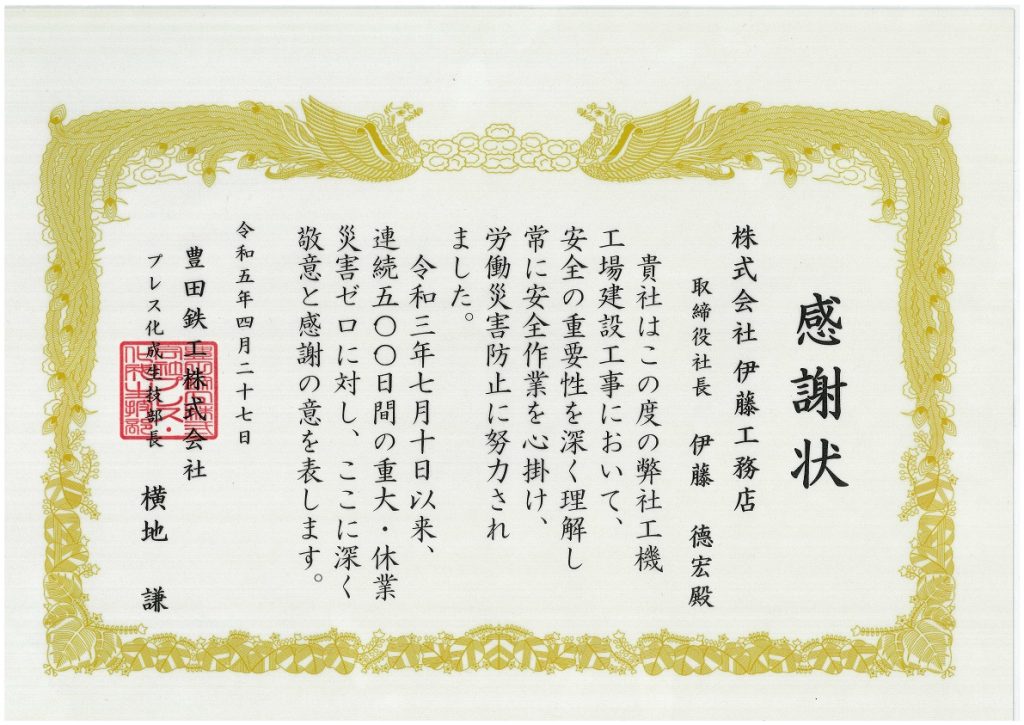 感謝状
株式会社 伊藤工務店
取締役社長 伊藤 德宏殿
貴社はこの度の弊社工機
工場建設工事において、
安全の重要性を深く理解し
常に安全作業を心掛け、
労働災害防止に努力され
ました。
令和三年七月十日以来、
連続五〇〇日間の重大・休業
災害ゼロに対し、ここに深く
敬意と感謝の意を表します。
令和五年四月二十七日
豊田鉄工株式会社
プレス化成生技部長 横地 謙